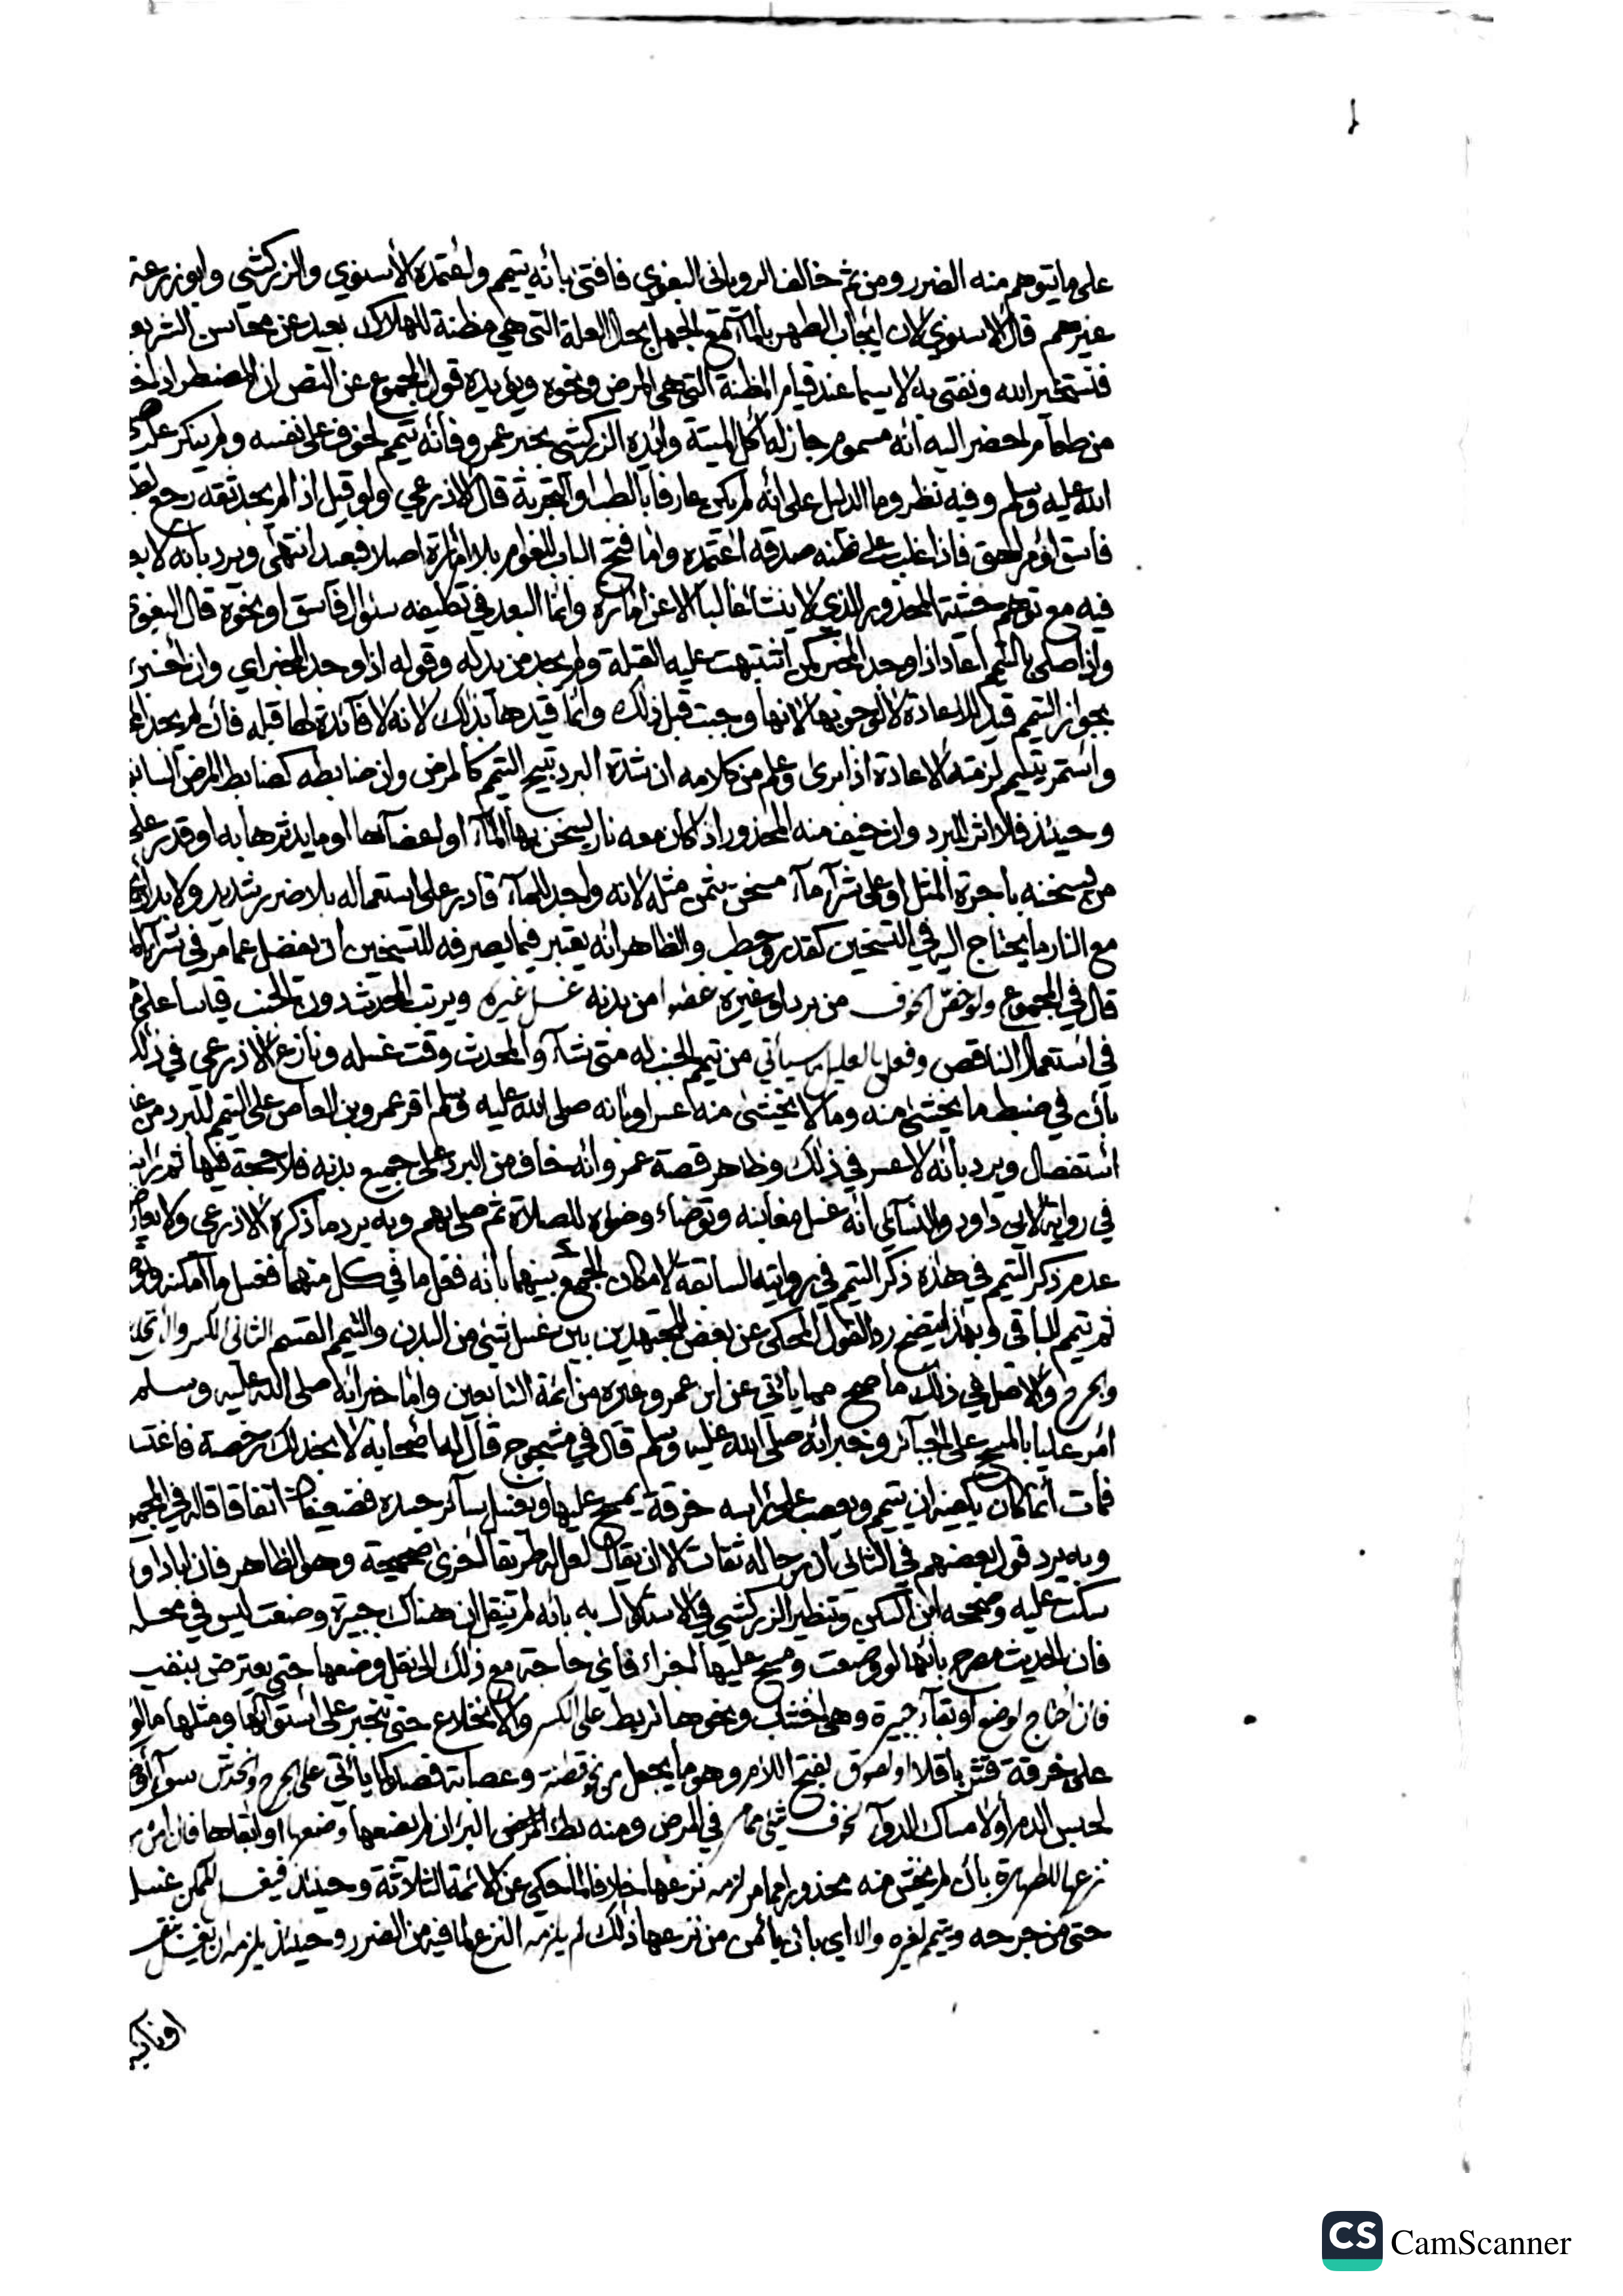 على ما يتوهم منه الضرر ومن ثم خالف الروياني البغوي فافتى بأنه يتيمم واعتمده الأسنوي والزركشي وابو زرعة
غيرهم قال الاسنوي لان ايجاب الطهر بالمآء مع الجهل بحال العلة التي هي مظنة للهلاك بعيد عن محاسن الشريعـ
فنستخير الله ونفتي به لا سيما عند قيام المظنة التي هي المرض ونحوه ويؤيده قول المجموع عن النص ان المضطر اذا خـ
من طعام احضر اليه أنه مسموم جاز له أكل الميتة وايده الزركشي بخبر عمرو فأنه تيمم لخوف على نفسه ولم ينكر عليه صلى
الله عليه وسلم وفيه نظر وما الدليل على انه لم يكن عارفا بالطب او التجربة قال الاذرعي ولو قيل اذا لم يجد ثقة رجع
فاسق او مراهق فاذا غلب على ظنه صدقه اعتمده واما فتح الباب للغوام بلا امارة اصلا فبعيد انتهى ويرد بأنه لا بعد
فيه مع توهم خشية المحذور الذي لا ينشأ غالبا الا عن امارة وانما البعد في تكليفه سئوال فاسق او نحوه قال البغوي
واذا صلى بالتيمم أعاد اذا وجد المخبر كمن اشتبهت عليه القبلة ولم يجد من يدله وقوله اذا وجد المخبر اي وان أخبره
بجواز التيمم قيد للاعادة لا لوجوبها لانها وجبت قبل ذلك وانما قيدها بذلك لانه لا فآئدة لها قبله فان لم يجد
واستمر يتيمم لزمته الاعادة اذا برئ وعلم من كلامه ان شدة البرد تبيح التيمم كالمرض وان ضابطه كضابط المرض السابق
وحينئذ فلا اثر للبرد وان خيف منه المحذور اذا كان معه نار يسخن بها المآء او اعضآءها او ما يدثرها به او قدر على
من يسخنه باجرة المثل او على شرآء مآء مسخن بثمن مثله لانه واجد للمآء قادر على استعماله بلا ضرر شديد ولا بد
مع النار ما يحتاج اليه في التسخين كقدر وحطب والظاهر انه يعتبر فيما يصرفه للتسخين أن يفضل عما مر في شرآء
قال في المجموع ولو خص الخوف من برد او غيره عضوا من بدنه غسل غيره ويرتب المحدث دون الجنب قياسا على
في استعمال الناقص وفعل بالعليل ما سيأتي من تيمم الجنب له متى شآء والمحدث وقت غسله ونازع الاذرعي في ذلك
بأن في ضبط ما يخشى منه وما لا يخشى منه عسرا وبانه صلى الله عليه وسلم اقر عمرو بن العاص على التيمم للبرد من غيـ
استفصال ويرد بأنه لا عسر في ذلك وظاهر قصة عمرو انه خاف من البرد على جميع بدنه فلا حجة فيها ثم رايت
في رواية لابي داود والنسآئي أنه غسل مغابنه وتوضاء وضوءه للصلاة ثم صلى بهم وبه يرد ما ذكره الاذرعي ولا يعارضـ
عدم ذكر التيمم في هذه ذكر التيمم في روايته السابقة لامكان الجمع بينهما بأنه فعل ما في كل منهما فغسل ما أمكنه
ثم تيمم للباقي وبهذا يتضح رد القول المحكي عن بعض المجتهدين بين غسل شئ من البدن والتيمم القسم الثاني الكسر والانخلا
والجرح والاصل في ذلك ما صح مما يأتي عن ابن عمر وغيره من ائمة التابعين واما خبر انه صلى الله عليه وسلم
أمر عليا بالمسح على الجبآئر وخبر انه صلى الله عليه وسلم قال في مشجوج قال له أصحابه لا نجد لك رخصة فاغتسـ
فمات انما كان يكفيه ان يتيمم ويعصب على راسه خرقة يمسح عليها ويغسل سآئر جسده فضعيفان اتفاقا قاله في المجمو
وبه يرد قول بعضهم في الثاني ان رجاله ثقات الا ان يقال لعل له طريقا أخرى صحيحة وهو الظاهر فان ابا داود
سكت عليه وصححه ابن السكن وتنظير الزركشي في الاستدلال به بأنه لم ينقل ان هناك جبيرة وضعت ليس في محله
فان الحديث مصرح بأنها لو وضعت ومسح عليها اجزاء فأي حاجة مع ذلك الى نقل وضعها حتى يعترض بنفيه
فان احتاج لوضع او بقآء جبيرة وهي أخشاب ونحوها تربط على الكسر والانخلاع حتى ينجبر على استوآئها ومثلها ما لو
على خرقة قشر باقلا او لصوق بفتح اللام وهو ما يجعل من نحو قطنة وعصابة فصد كما يأتي على الجرح والخدش سوآء
لحبس الدم أو لامساك الدوآء لخوف شئ مما مر في المرض ومنه بطء البرء ان لم يضعها وضعها او ابقاها فان امن من
نزعها للطهارة بأن لم يخش منه محذورا مما مر لزمه نزعها خلافا لما حكي عن الائمة الثلاثة وحينئذ فيغسل الممكن غسله
حتى من جرحه ويتيمم لغيره والا اي بان لم يأمن من نزعها ذلك لم يلزمه النزع لما فيه من الضرر وحينئذ يلزمه ان يغسل